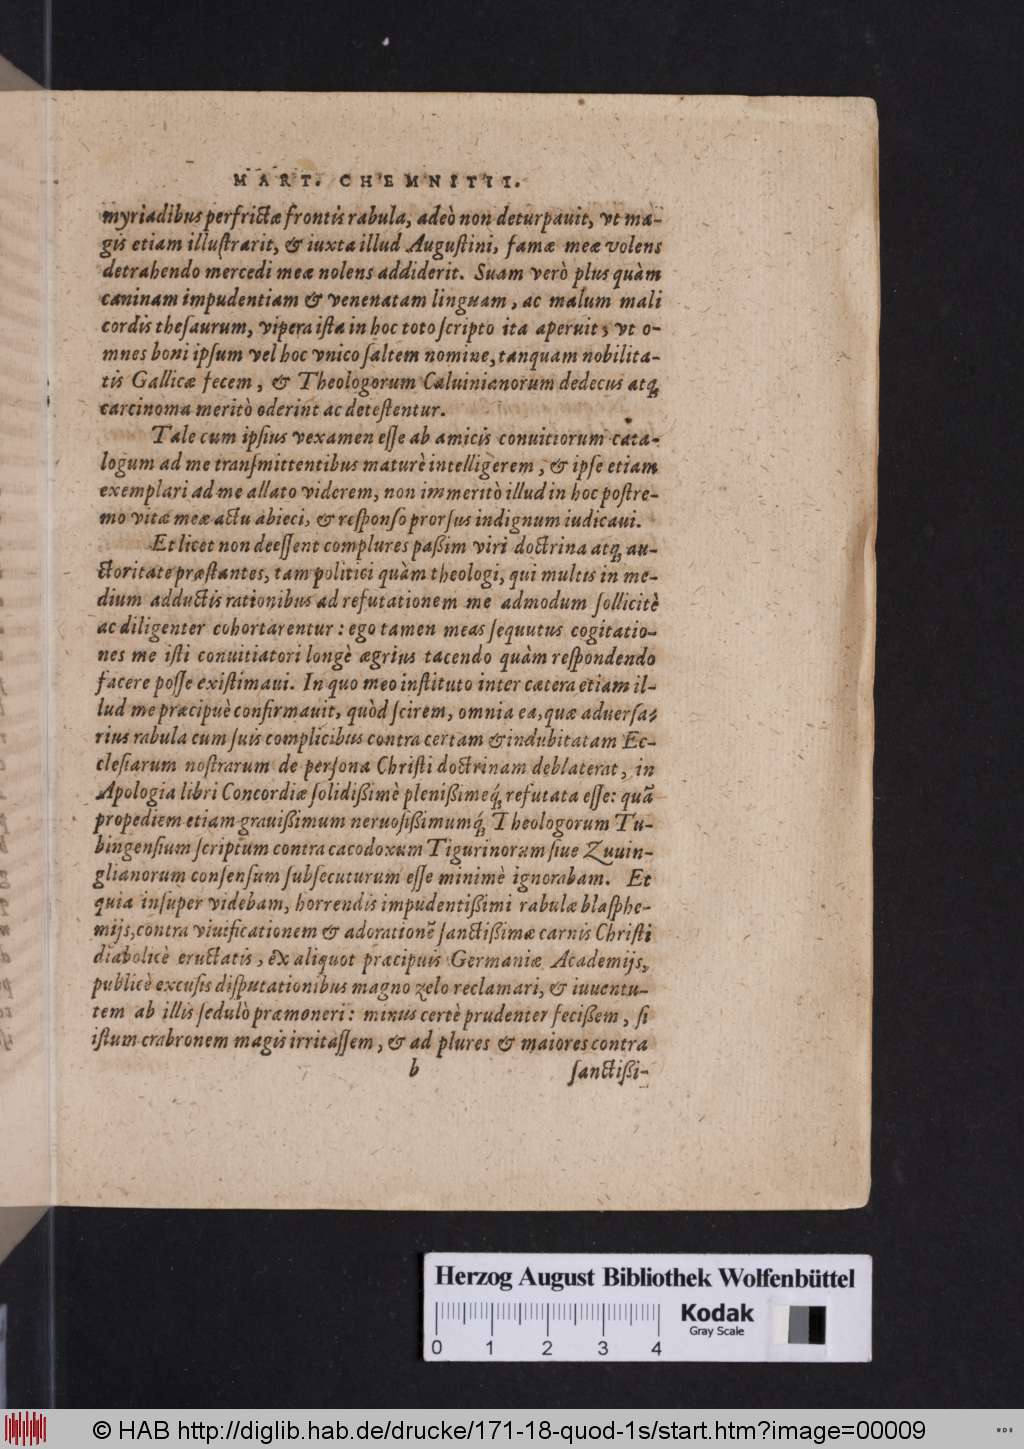 MART. CHEMNITII.
myriadibus perfrictæ frontis rabula, adeò non deturpauit, vt ma-
gis etiam illuſtrarit, & iuxta illud Auguſtini, famæ meæ volens
detrahendo mercedi meæ nolens addiderit. Suam verò plus quàm
caninam impudentiam & venenatam linguam, ac malum mali
cordis theſaurum, vipera iſta in hoc toto ſcripto ita aperuit, vt o-
mnes boni ipſum vel hoc vnico ſaltem nomine, tanquam nobilita-
tis Gallicæ fecem, & Theologorum Caluinianorum dedecus atq́
carcinoma meritò oderint ac deteſtentur.
Tale cum ipſius vexamen eſſe ab amicis conuitiorum cata-
logum ad me tranſmittentibus maturè intelligerem, & ipſe etiam
exemplari ad me allato viderem, non immeritò illud in hoc poſtre-
mo vitæ meæ actu abieci, & reſponſo prorſus indignum iudicaui.
Et licet non deeſſent complures paßim viri doctrina atq́ au-
ctoritate præſtantes, tam politici quàm theologi, qui multis in me-
dium adductis rationibus ad refutationem me admodum ſollicitè
ac diligenter cohortarentur: ego tamen meas ſequutus cogitatio-
nes me iſti conuitiatori longè ægrius tacendo quàm reſpondendo
facere poſſe exiſtimaui. In quo meo inſtituto inter cætera etiam il-
lud me præcipuè confirmauit, quòd ſcirem, omnia ea, quæ aduerſa-
rius rabula cum ſuis complicibus contra certam & indubitatam Ec-
cleſiarum noſtrarum de perſona Chriſti doctrinam deblaterat, in
Apologia libri Concordiæ ſolidißimè plenißimeq́; refutata eſſe: quã
propediem etiam grauißimum neruoſißimumq́; Theologorum Tu-
bingenſium ſcriptum contra cacodoxum Tigurinorum ſiue Zuuin-
glianorum conſenſum ſubſecuturum eſſe minimè ignorabam. Et
quia inſuper videbam, horrendis impudentißimi rabulæ blaſphe-
mijs, contra viuificationem & adorationẽ ſanctißimæ carnis Chriſti
diabolicè eructatis, ex aliquot præcipuis Germaniæ Academijs,
publicè excuſis diſputationibus magno zelo reclamari, & iuuentu-
tem ab illis ſedulò præmoneri: minus certè prudenter feciſſem, ſi
iſtum crabronem magis irritaſſem, & ad plures & maiores contra
b
ſanctißi-
Herzog August Bibliothek Wolfenbüttel
0 1 2 3 4
Kodak
Gray Scale
© HAB http://diglib.hab.de/drucke/171-18-quod-1s/start.htm?image=00009